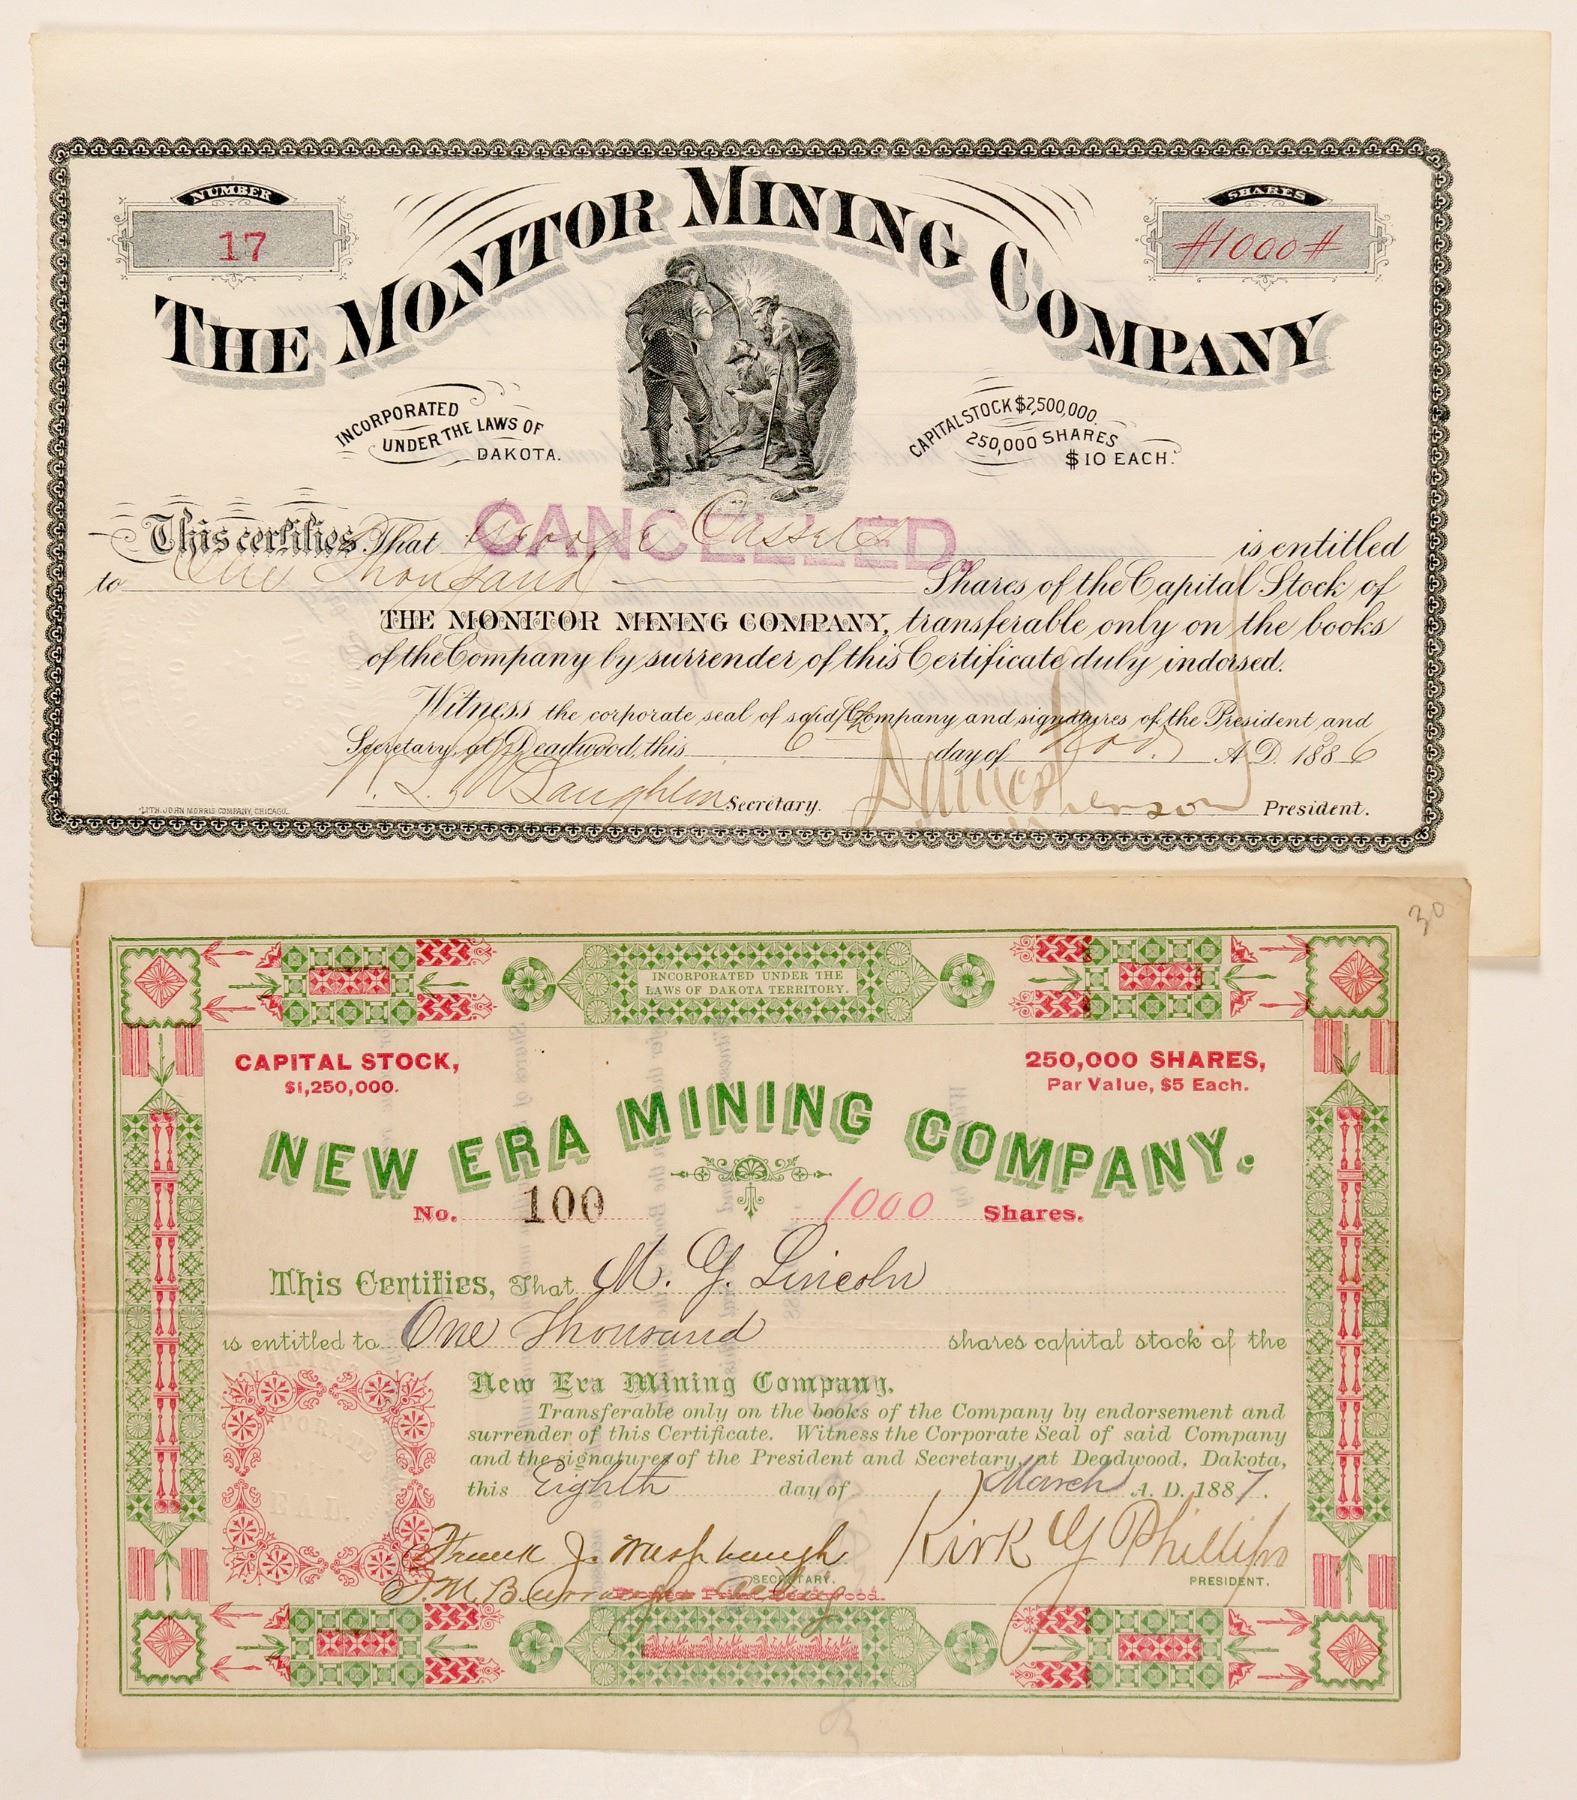 NUMBER
17
SHARES
#1000#
THE MONITOR MINING COMPANY
INCORPORATED
UNDER THE LAWS OF
DAKOTA.
CAPITAL STOCK $2,500,000.
250,000 SHARES
$10 EACH.
CANCELLED.
This certifies That George Cassels is entitled
to One Thousand Shares of the Capital Stock of
THE MONITOR MINING COMPANY, transferable only on the books
of the Company by surrender of this Certificate duly indorsed.
Witness the corporate seal of said Company and signatures of the President and
Secretary, at Deadwood, this 6 day of Nov. A.D. 1886
L. McLaughlin Secretary. President.
LITH. JOHN MORRIS COMPANY, CHICAGO.
30
INCORPORATED UNDER THE
LAWS OF DAKOTA TERRITORY.
CAPITAL STOCK,
$1,250,000.
250,000 SHARES,
Par Value, $5 Each.
NEW ERA MINING COMPANY.
No. 100 1000 Shares.
This Certifies, That M. G. Lincoln
is entitled to One Thousand shares capital stock of the
New Era Mining Company,
Transferable only on the books of the Company by endorsement and
surrender of this Certificate. Witness the Corporate Seal of said Company
and the signatures of the President and Secretary, at Deadwood, Dakota,
this Eighth day of March A. D. 1887.
Frank J. Washabaugh Kirk G Phillips
SECRETARY. PRESIDENT.